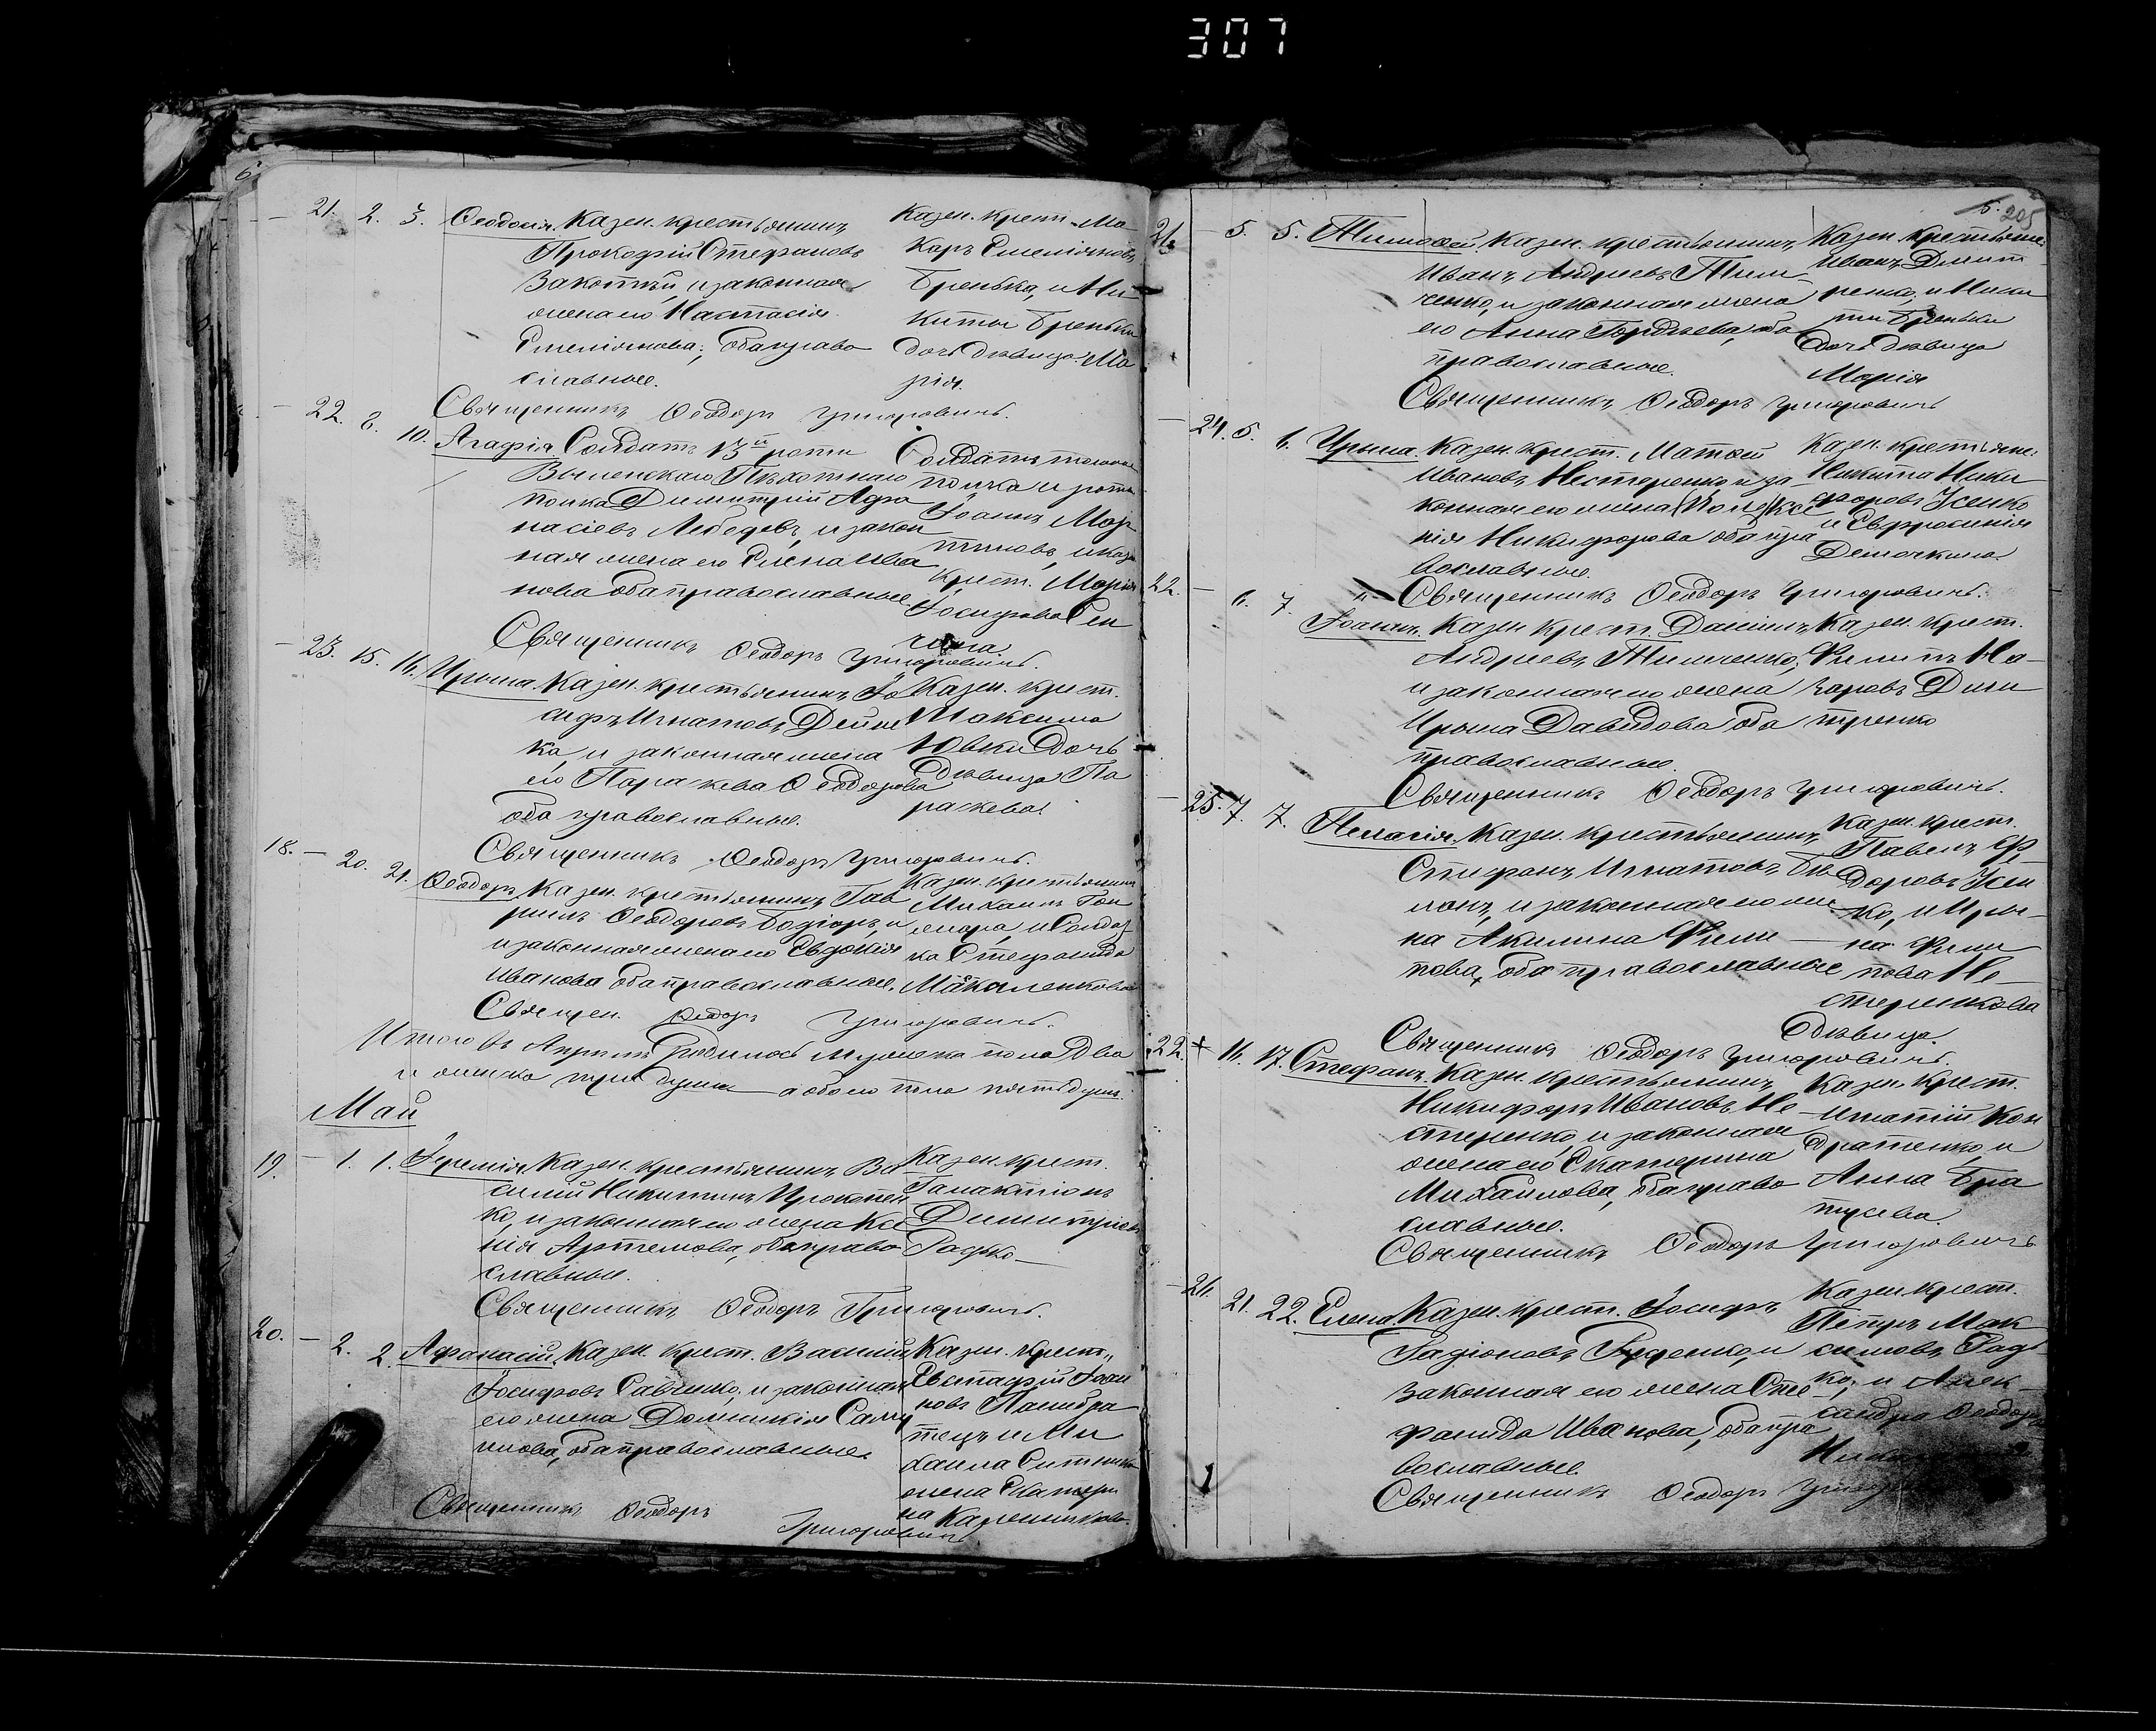 307
6
21. 2. 3. Ѳеодосія. Казен. крестьянинъ
Прокофій Стефановъ
Закотній, и законная
жена его Настасія
Емеліянова, оба право
славные.
Казен. крест. Ма
каръ Емеліяновъ
Бренька, и Ни
киты Бреньки
дочь дѣвица Ма
рія.
Священникъ Ѳеодоръ Григоровичъ.
22. 8. 10. Агафія. Солдатъ 13й роты
Виленскаго Пѣхотнаго
полка Димитрій Афа
насіевъ Лебедевъ, и закон
ная жена его Елена Ива
нова оба православные.
Солдатъ
полка и роты
Іоаннъ Мар
тыновъ, и каз.
крест. Марія
Іосифова
Священникъ Ѳеодоръ Григоровичъ.
23. 15. 16. Ирина. Казен. крестьянинъ Іо
сифъ Игнатовъ Дейне
ка, и законная жена
его Параскева Ѳеодорова
оба православные.
Казен. крест.
Максима
Ювки дочь
дѣвица Па
раскева.
Священникъ Ѳеодоръ Григоровичъ.
18. – 20. 21. Ѳеодоръ. Казен. крестьянинъ Гав
риилъ Ѳеодоровъ и
и законная жена его Евдокія
Иванова оба православные.
Казен. крестьянинъ
Михаилъ Гон
чара, и Солдат
ка Стефанида
Макаленкова
Священ. Ѳеодоръ Григоровичъ.
Итого въ Апрѣлѣ родилось мужеска пола два
и женска три души а обоего пола пять душъ.
Май
19. – 1. 1. Іеремія. Казен. крестьянинъ Ва
силій Никитинъ Прокопен
ко, и законная его жена Ксе
нія Артемова, оба право
славные.
Казен. крест.
Галактіонъ
Димитріевъ
Радко
Священникъ Ѳеодоръ Григоровичъ.
20. – 2. 2. Афанасій. Казен. крест. Василій
Іосифовъ Савченко, и законная
его жена Домникія Саму
илова, оба православные.
Казен. крест.
Евстафій Іоан
новъ Палибра
тецъ и Ми
хаила Ситника
жена Екатери
на
Священникъ Ѳеодоръ Григоровичъ.
6. 205
21. – 5. 5. Тимофей. Казен. крестьянинъ
Иванъ Андреевъ Тим
ченко, и законная жена
его Анна Гордѣева, оба
православные.
Казен. крестьяне.
Иванъ Дмит
ренко, и Ники
ты Бреньки
дочь дѣвица
Марія
Священникъ Ѳеодоръ Григоровичъ
24. 5. 6. Ирина. Казен. крест. Матфей
Ивановъ Нестеренко и за
конная его жена Ксе
нія Никифорова оба пра
вославные.
Казен. крестьяне.
Никита Ники
форовъ Усенко
и Евфросинія
Демочкина
Священникъ Ѳеодоръ Григоровичъ.
22. – 6. 7. Іоаннъ. Казен. крест. Даніилъ
Андреевъ Тимченко,
и законная его жена
Ирина Давидова оба
православные.
Казен. крест.
Филипъ На
заровъ Дми
тренко
Священникъ Ѳеодоръ Григоровичъ.
25. 7. 7. Пелагія. Казен. крестьянинъ
Стефанъ Игнатовъ Бѣ
лонъ, и законная его же
на Акилина Фили
пова, оба православные
Казен. крест.
Павелъ Ѳе
доровъ Усен
ко, и Ири
на Фили
пова Не
стеренкова
дѣвица.
Священникъ Ѳеодоръ Григоровичъ
22. + 16. 17. Стефанъ. Казен. крестьянинъ
Никифоръ Ивановъ Не
стеренко, и законная
жена его Екатерина
Михайлова, оба право
славные.
Казен. крест.
Игнатій Кон
дратенко, и
Анна Бра
тусева.
Священникъ Ѳеодоръ Григоровичъ
26. 21. 22. Елена. Казен. крест. Іосифъ
Радіоновъ и
законная его жена Сте
фанида Иванова, оба пра
вославные.
Казен. крест.
Петръ Мак
симовъ Радь
ко, и Алек
сандра Ѳеодоро
Священникъ Ѳеодоръ